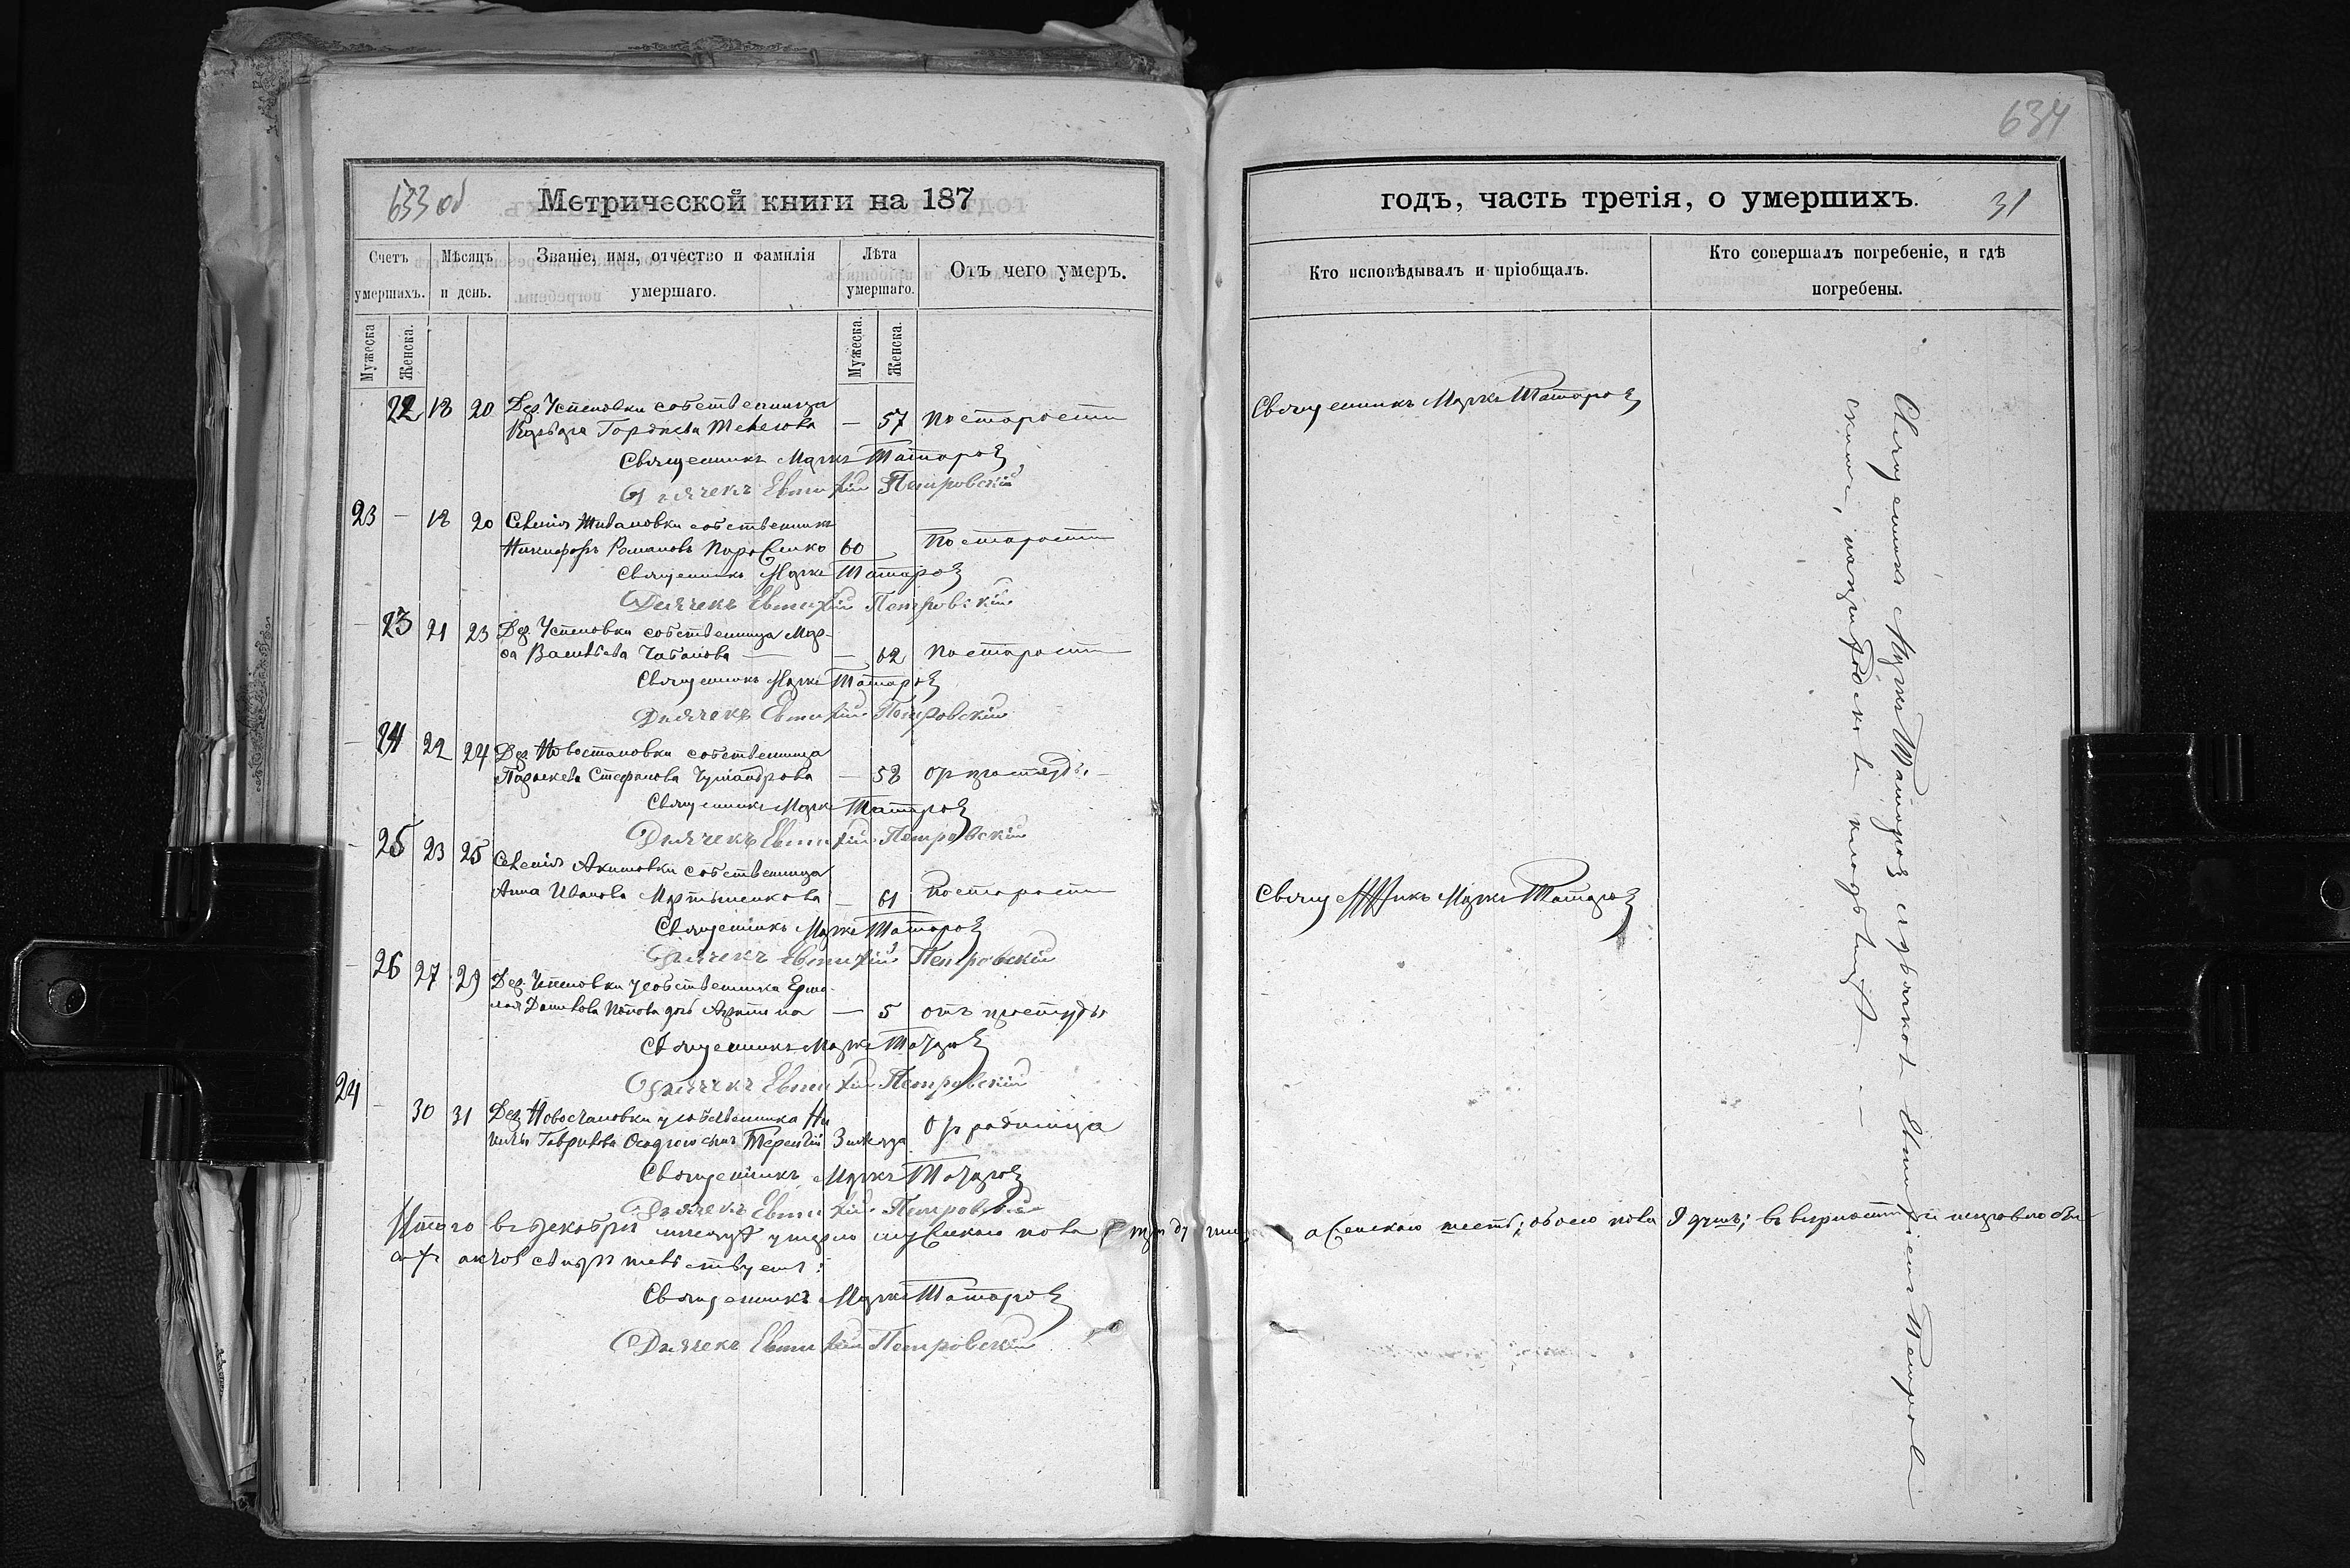 633 об
Метрической книги на 187
Счетъ умершихъ.
Мѣсяцъ и день.
Званіе, имя, отчество и фамилія умершаго.
Лѣта умершаго.
Отъ чего умеръ.
Мужеска
Женска.
Мужеска.
Женска.
22 18 20 Дер. Успеновки собственница
Гордіева — 57 По старости
Священникъ Маркъ Татаровъ
Дьячекъ Евтихій Петровскій
23 — 18 20 Селенія собственникъ
Никифоръ Романовъ 60 По старости
Священникъ Маркъ Татаровъ
Дьячекъ Евтихій Петровскій
— 23 21 23 Дер. Успеновки собственница Мар-
ѳа Васильева Чабанова — — 62 По старости
Священникъ Маркъ Татаровъ
Дьячекъ Евтихій Петровскій
— 24 22 24 Дер. Новостановки собственница
Параскева Стефанова — 58 От простуды
Священникъ Маркъ Татаровъ
Дьячекъ Евтихій Петровскій
— 25 23 25 Селенія Акимовки собственница
Анна Иванова Мартыненкова — 61 По старости
Священникъ Маркъ Татаровъ
Дьячекъ Евтихій Петровскій
— 26 27 29 Дер. Успеновки у собственника Ермо-
лая Данилова Попова дочь — 5 отъ простуды
Священникъ Маркъ Татаровъ
Дьячекъ Евтихій Петровскій
24 — 30 31 Дер. Новостановки у собственника Ни
киты Гаврилова сынъ Терентій 3 От родимца
Священникъ Маркъ Татаровъ
Дьячекъ Евтихій Петровскій
Итого въ декабрѣ мѣсяцѣ умерло мужескаго пола три ду
свидѣтельствуемъ:
Священникъ Маркъ Татаровъ
Дьячекъ Евтихій Петровскій
634
годъ, часть третія, о умершихъ.
31
Кто исповѣдывалъ и пріобщалъ.
Кто совершалъ погребеніе, и гдѣ погребены.
Священникъ Маркъ Татаровъ
Священникъ Маркъ Татаровъ
а женскаго шесть; обоего пола 9 душъ; въ вѣрности
Священникъ Маркъ Татаровъ съ дьячкомъ Евтихіемъ Петров
скимъ, на приходскомъ кладбищѣ —